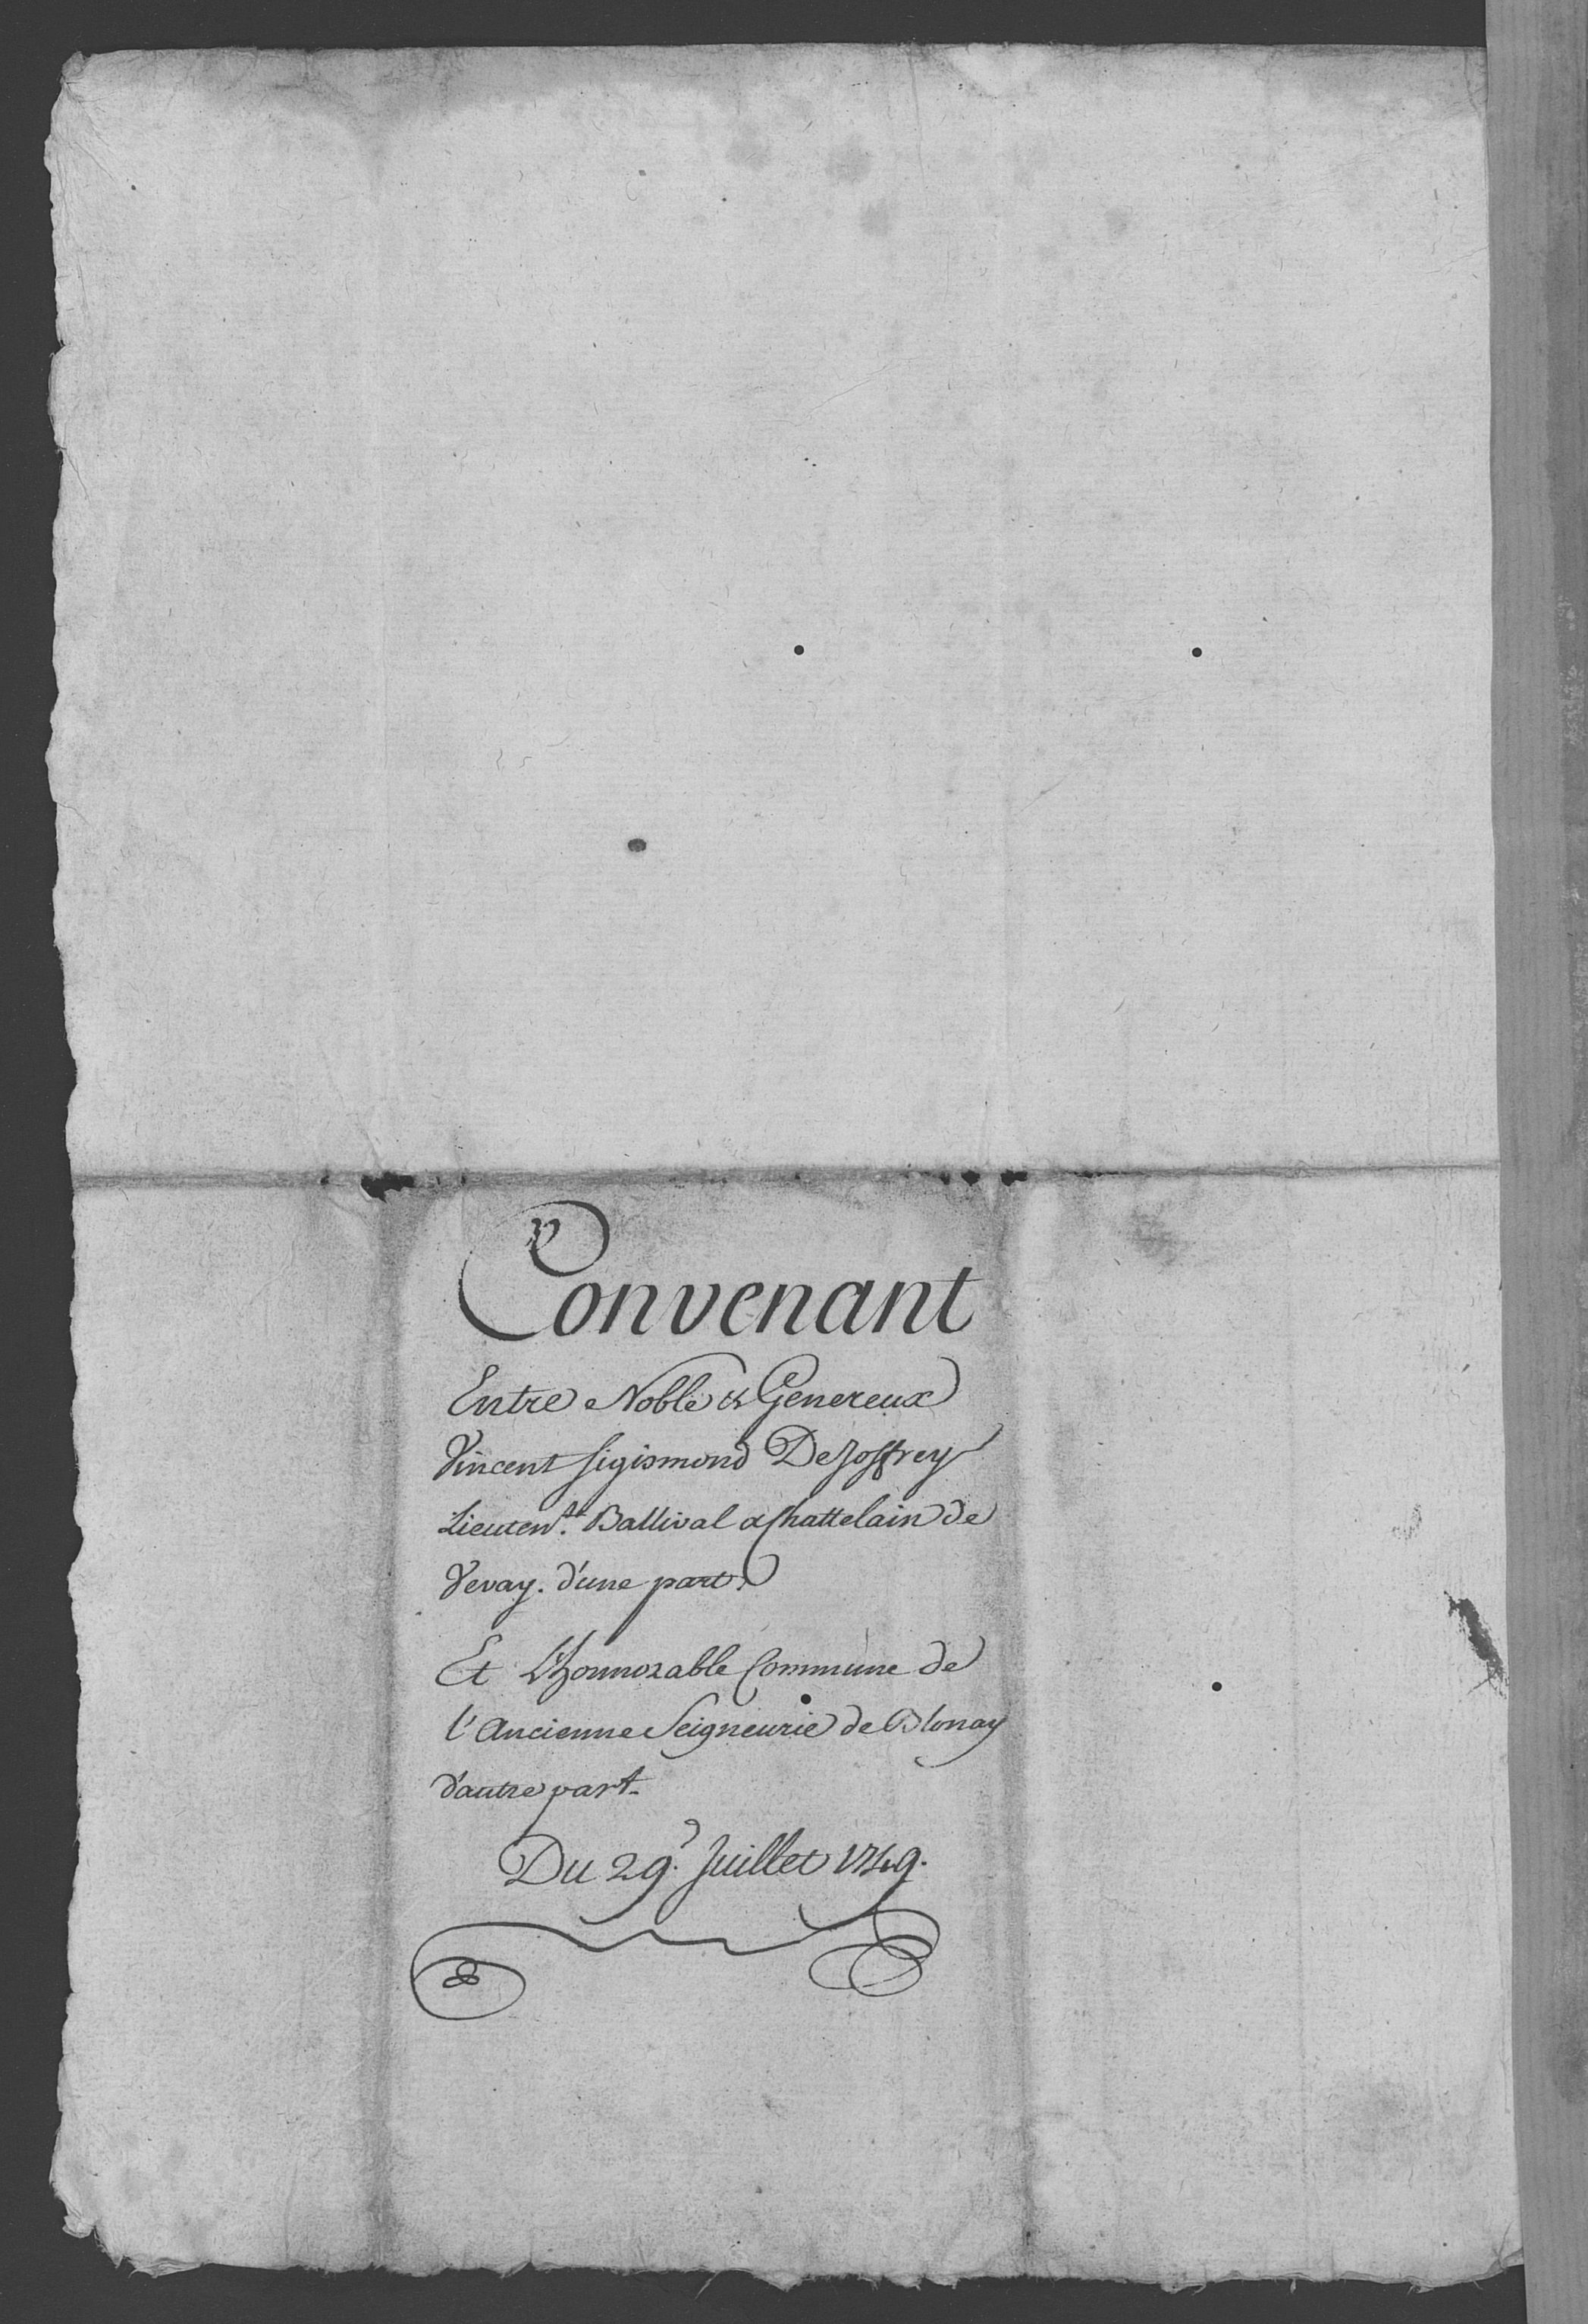 Convenant
Entre Noble & Genereux
Vincent Sigismond DeJoffrey
Lieuten.^t Ballival & Chattelain de
Vevay. d'une part.
Et L'honnorable Commune de
l'Ancienne Seigneurie de Blonay
d'autre part.
Du 29.^e Juillet 1749.